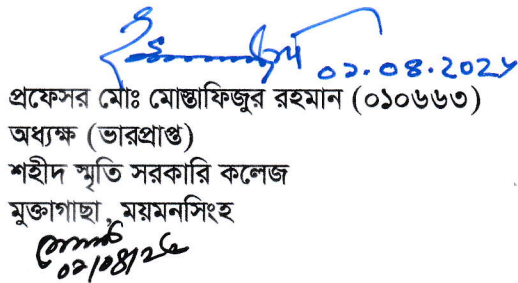 ০১.০৪.২০২৫
প্রফেসর মোঃ মোস্তাফিজুর রহমান (০১০৬৬৩)
অধ্যক্ষ (ভারপ্রাপ্ত)
শহীদ স্মৃতি সরকারি কলেজ
মুক্তাগাছা, ময়মনসিংহ